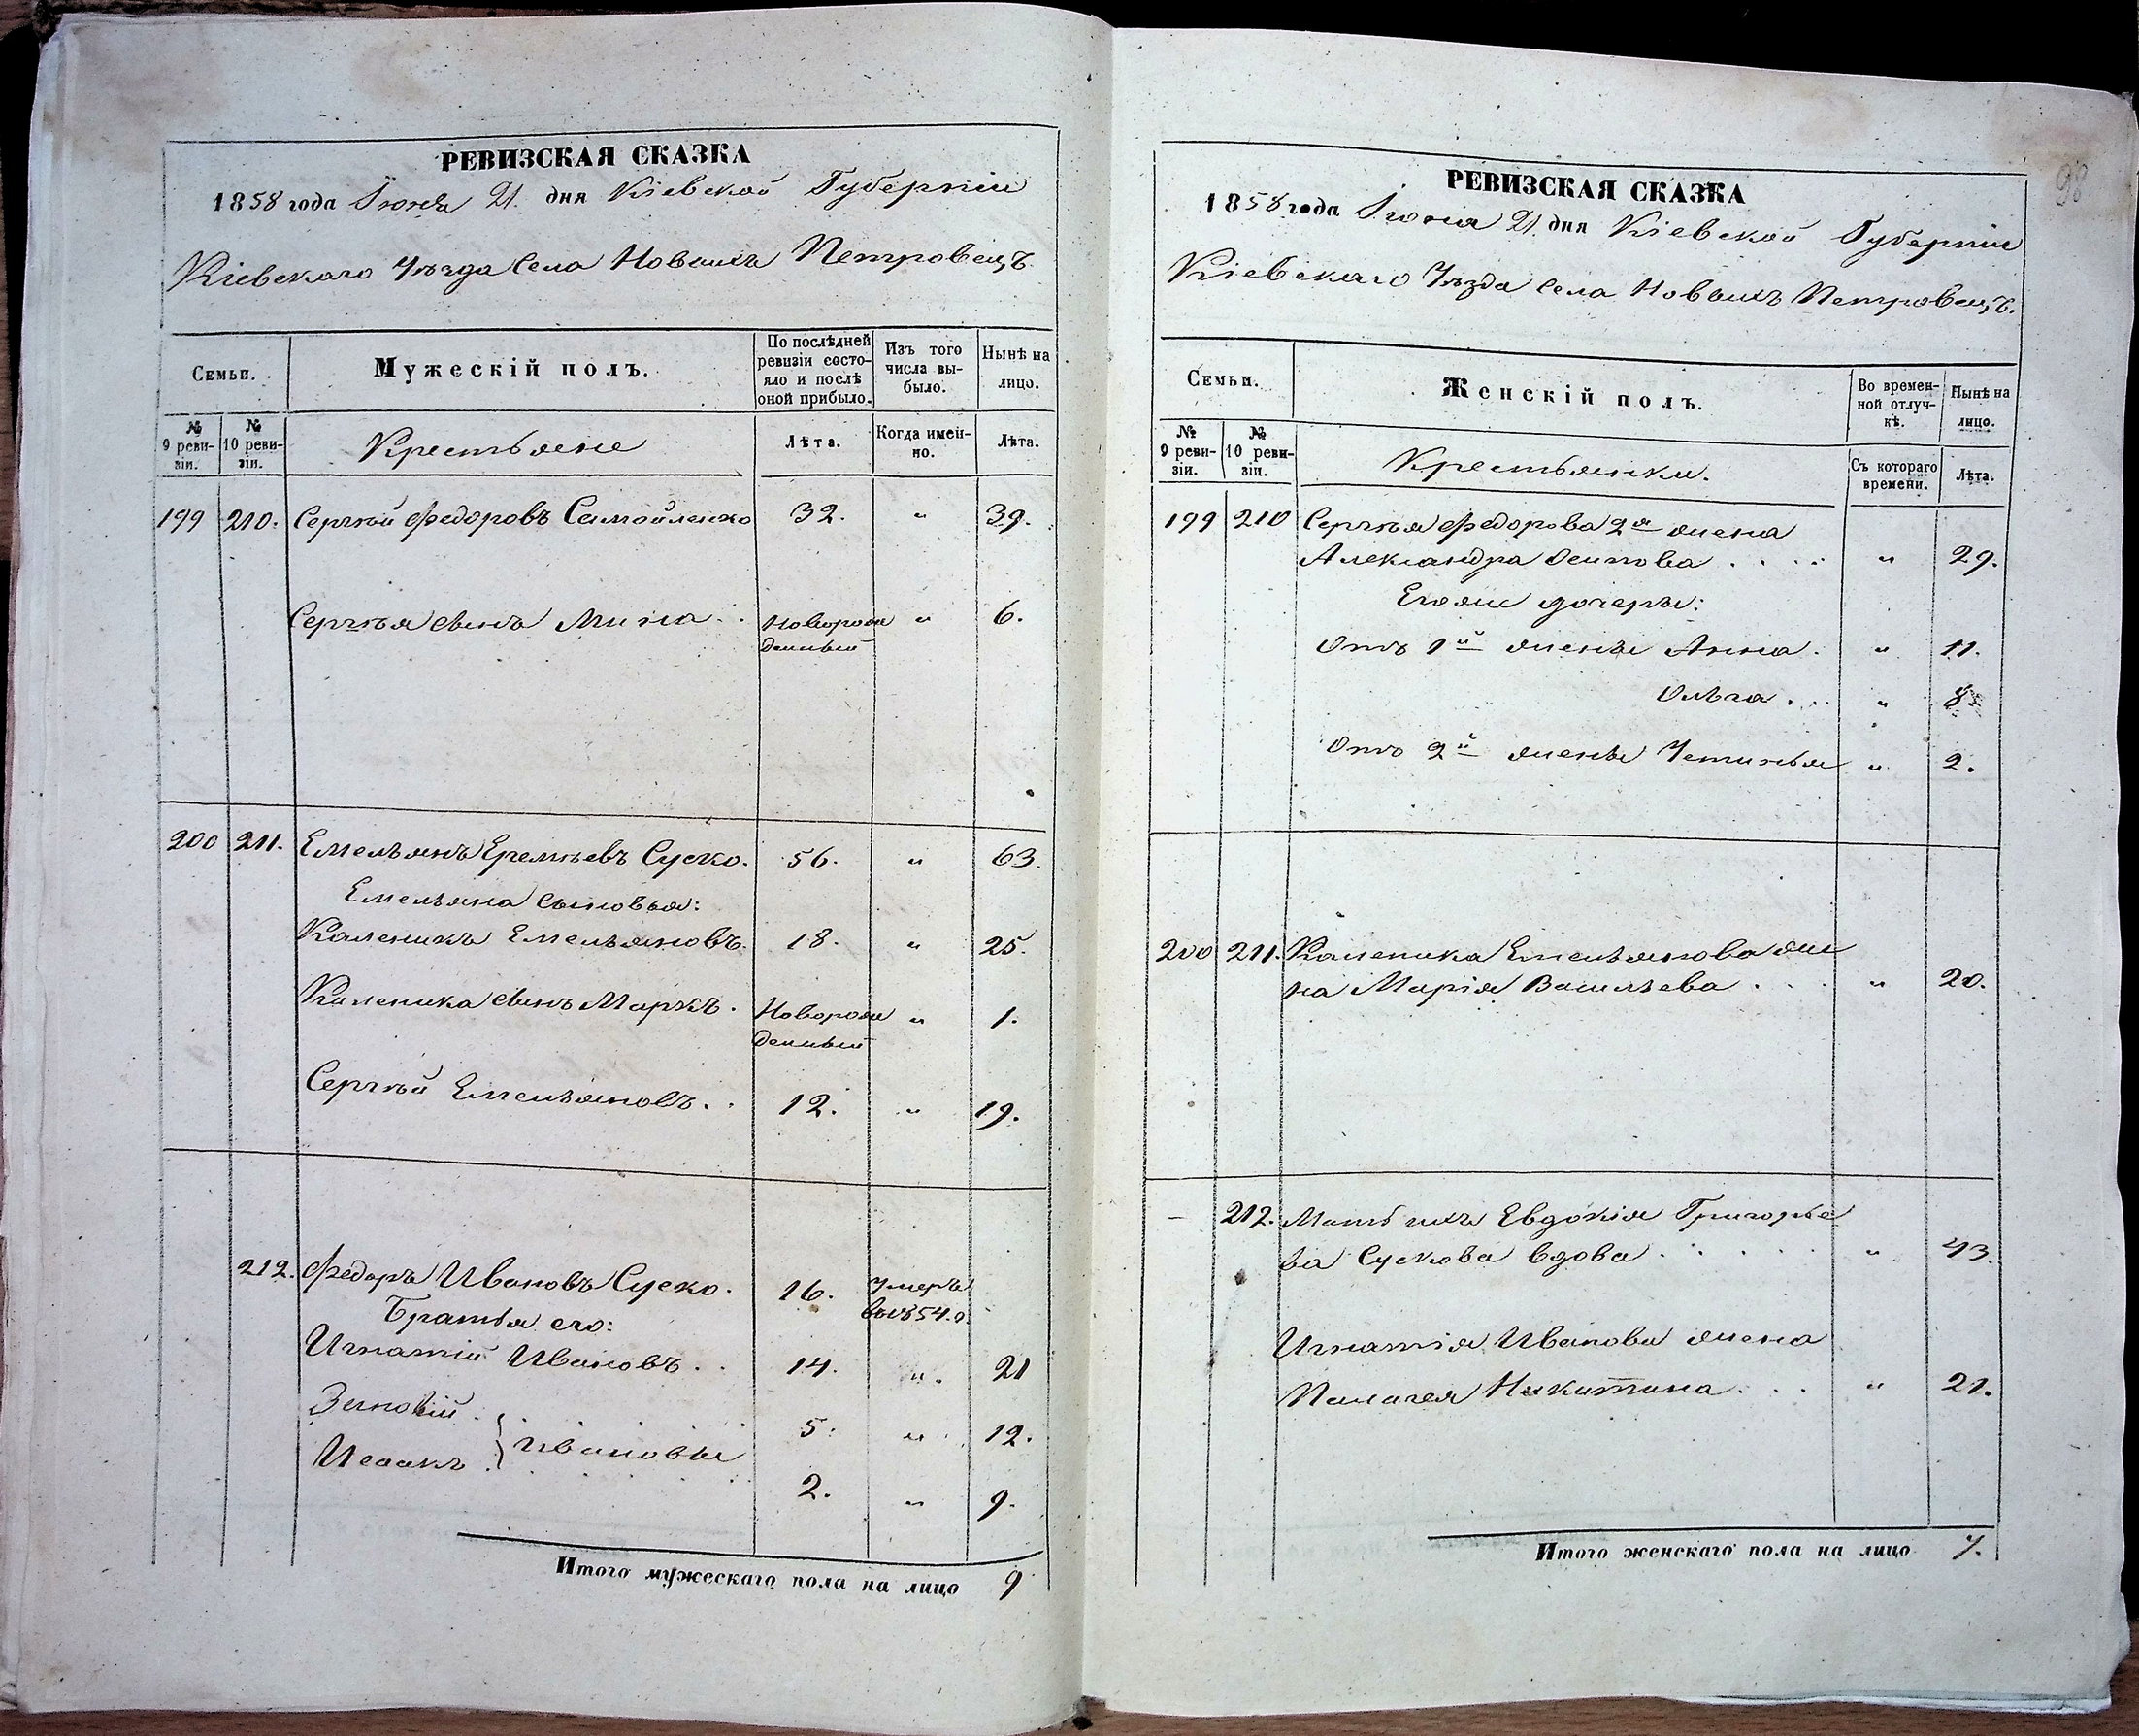 РЕВИЗСКАЯ СКАЗКА
1858 года Іюня 21 дня Кіевской Губерніи
Кіевскаго Уѣзда Села Новыхъ Петровецъ
Семьи.
Мужескій полъ.
По послѣдней ревизіи состояло и послѣ оной прибыло.
Изъ того числа выбыло.
Нынѣ на лицо.
№ 9 ревизіи.
№ 10 ревизіи.
Крестьяне
Лѣта.
Когда именно.
Лѣта.
199 210. Сергѣй Федоровъ Самойленко 32. " 39.
Сергѣя сынъ Мина . . Новорож " 6.
денный
200 211. Емельянъ Еремѣевъ Суско. 56. " 63.
Емельяна сыновья:
Каленикъ Емельяновъ. 18. " 25.
Каленика сынъ Маркъ. Новорож " 1.
денный
Сергѣй Емельяновъ. . 12. " 19.
212. Федоръ Ивановъ Суско. 16. Умеръ
въ 1854. г.
Братья его:
Игнатій Ивановъ. . 14. " 21
Зеновій . 5. " 12.
Исаакъ . } Ивановы 2. " 9.
Итого мужескаго пола на лицо 9
98
РЕВИЗСКАЯ СКАЗКА
1858 года Іюня 21 дня Кіевской Губерніи
Кіевскаго Уѣзда Села Новыхъ Петровецъ.
Семьи.
Женскій полъ.
Во временной отлучкѣ.
Нынѣ на лицо.
№ 9 ревизіи.
№ 10 ревизіи.
Крестьянки.
Съ котораго времени.
Лѣта.
199 210 Сергѣя Федорова 2я жена
Александра Осипова . . . . " 29.
Его же дочери:
Отъ 1й жены Анна. " 11.
Ольга . . . " 8.
Отъ 2й жены Устинья " 2.
200 211. Каленика Емельянова же
на Марія Васильева . . . " 20.
– 212. Мать ихъ Евдокія Григорье
ва Сускова вдова . . . . . " 43.
Игнатія Иванова жена
Палагея Никитина . . . " 21.
Итого женскаго пола на лицо 7.